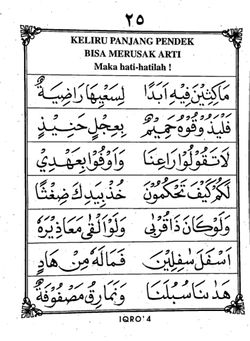 ٢٥
KELIRU PANJANG PENDEK
BISA MERUSAK ARTI
Maka hati-hatilah !
مَاكِثِيْنَ فِيْهِ اَبَدًا لِسَعْيِهَا رَاضِيَةٌ
فَلْيَذُوْقُوْهُ حَمِيْمٌ بِعِجْلٍ حَنِيْذٍ
لَا تَقُوْلُوْا رَاعِنَا وَاَوْفُوْا بِعَهْدِيْ
لَكُمْ كَيْفَ تَحْكُمُوْنَ خُذْ بِيَدِكَ ضِغْثًا
وَلَوْ كَانَ ذَا قُرْبٰى وَلَوْ اَلْقٰى مَعَاذِيْرَهُ
اَسْفَلَ سَافِلِيْنَ فَمَالَهُ مِنْ هَادٍ
هَدٰىنَا سُبُلَنَا وَنَمَارِقُ مَصْفُوْفَةٌ
IQRO' 4